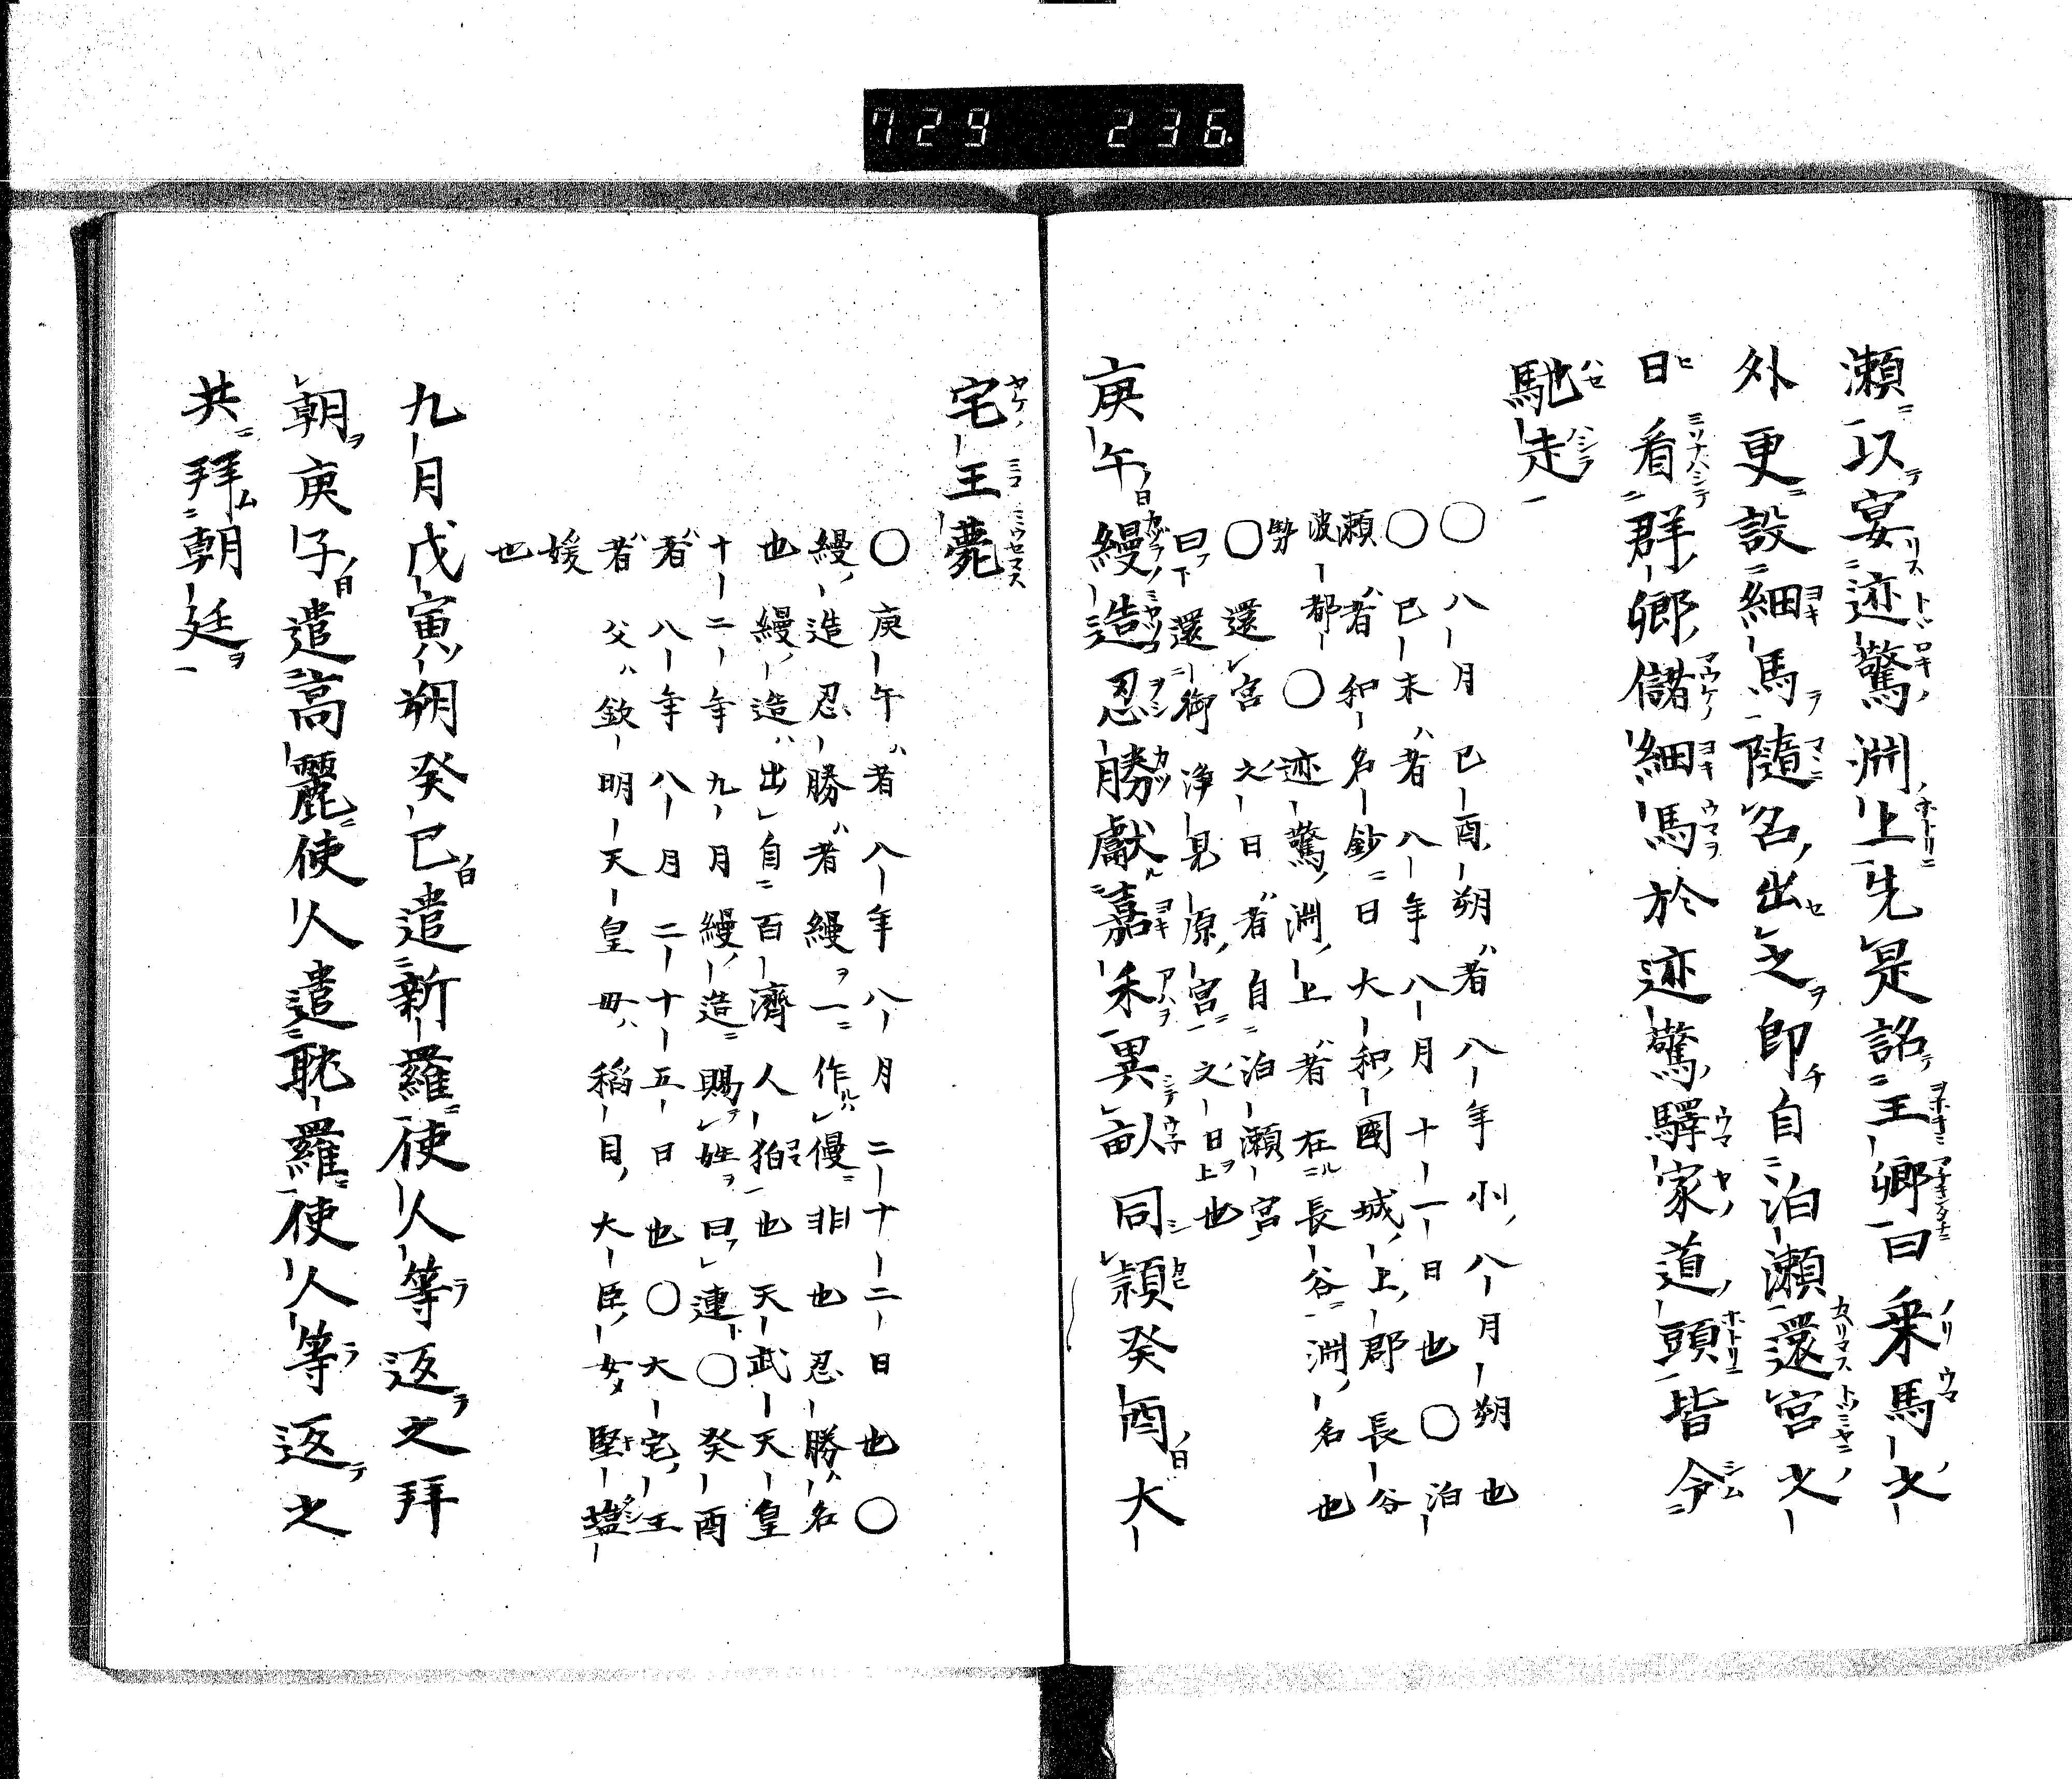 729 236
瀬以宴迹驚淵上先是詔王卿曰乗馬之
外更設細馬隨名出之即自泊瀬還宮之
日看群卿儲細馬於迹驚驛家道頭皆令
馳走
〇八月己酉朔者八年小八月朔也
〇己未者八年八月十一日也〇泊
瀬者和名鈔曰大和國城上郡長谷
波都勢〇迹驚淵上者在長谷淵名也
〇還宮之日者自泊瀬宮
還御浄見原宮之日也
庚午縵造忍勝獻嘉禾異畝同頴癸酉大
宅王薨
〇庚午者八年八月二十二日也〇
縵造忍勝者縵一作儾非也忍勝名
也縵造出自百濟人狛也天武天皇
十二年九月縵造賜姓曰連〇癸酉
者八年八月二十五日也〇大宅王
者父欽明天皇母稲目大臣女堅塩
媛也
九月戊寅朔癸巳遣新羅使人等返之拜
朝庚子遣高麗使人遣耽羅使人等返之
共拜朝廷